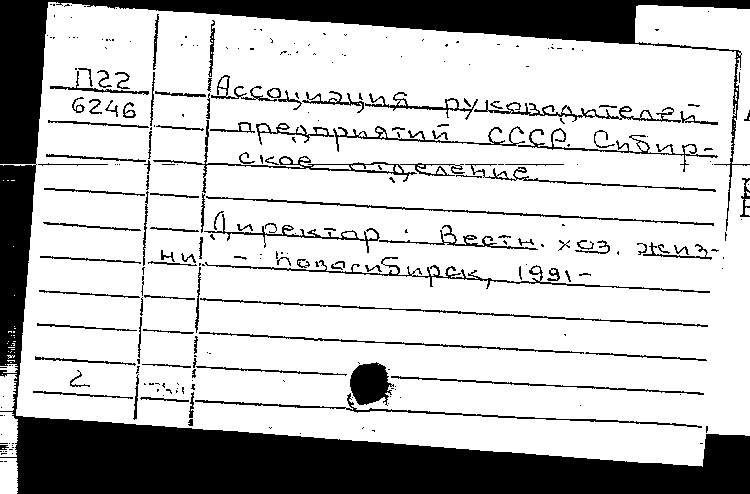 П22
6246
Ассоциация руководителей
предприятий СССР. Сибир-
ское отделение.
Директор : Вестн. хоз. жиз-
ни. - Новосибирск, 1991-
2